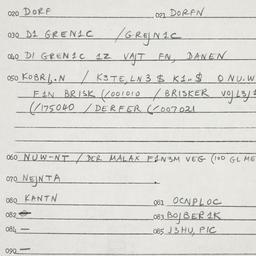 020 DORF 021 DORFN
030 D1 GREN1C / GREJN1C
040 D1 GREN1C 1Z VAJT FN, DANEN
050 KOBR/.N / K3TE,LN3 $ K1.$ O NU.W
F1N BRISK (/001010 / BRISKER
(/175040 / DERFER (/007021
060 NUW-NT / DER MALAX F1N3M VEG (100 GL ME
070 NEJNTA
080 KANTN 081 OCNPLOC
082 083 BOJBER1K
084 — 085 J3HU, PIC
090 —